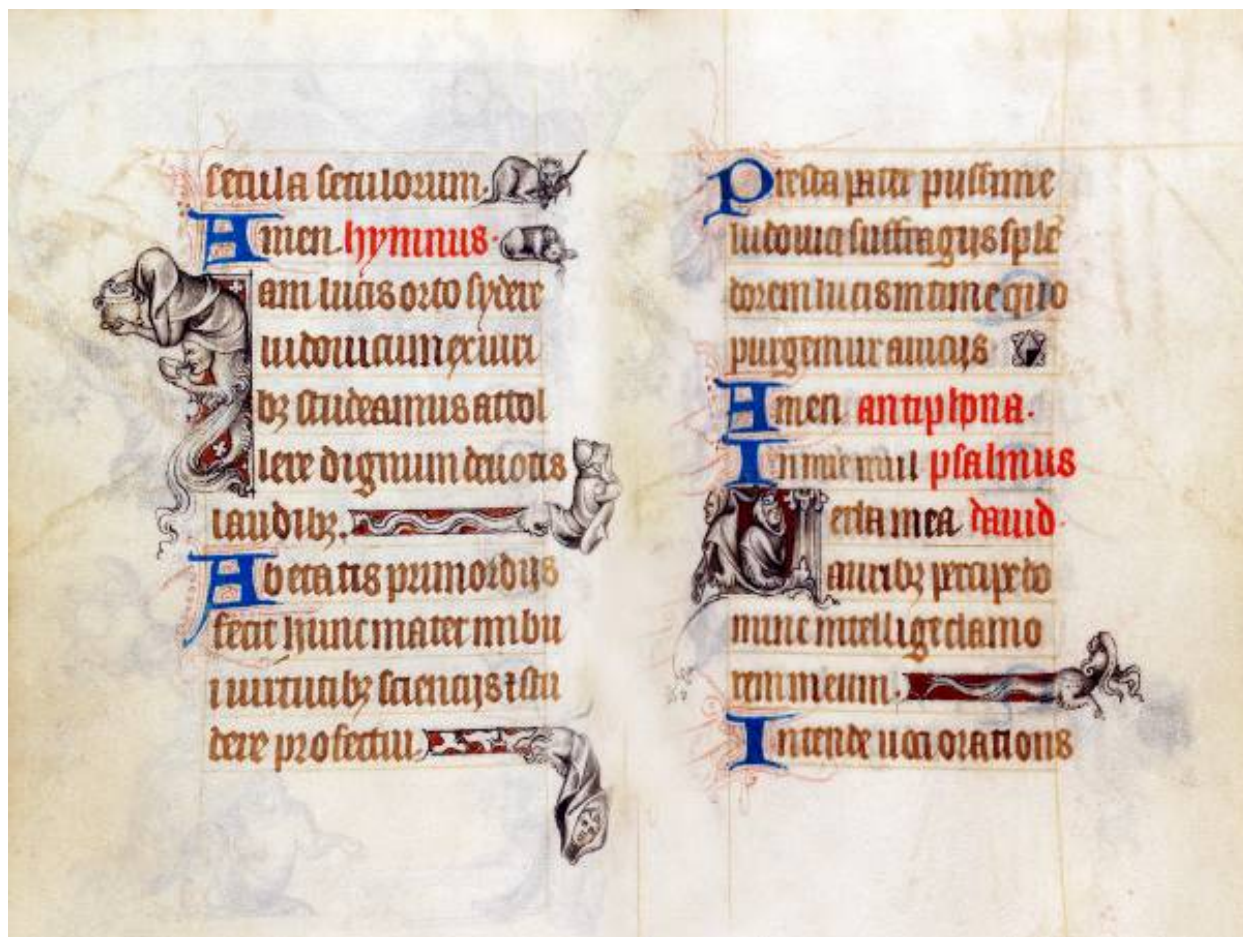 secula seculorum.
Amen hymnus.
Iam lucis orto sydere
ludovicum ex iuri
bꝫ studeamus attol
lere dignum devotis
laudibꝫ.
Ab etatis primordijs
fecit hunc mater imbu
i virtutibꝫ sciencijs ⁊ stu
dere profectui
Presta pater pijssime
ludovici suffragijs splē
dorem lucis intime quo
purgemur a vicijs
Amen antiphona.
In psalmus
Verba mea david.
auribꝫ percipe do
mine intellige clamo
rem meum.
Intende voci orationis